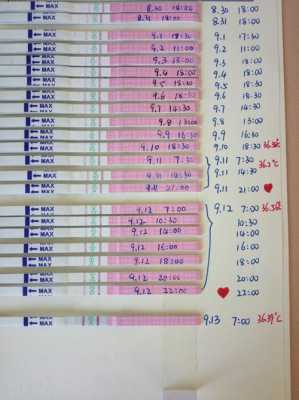 ← MAX 8.30 18:00 8.30 18:00
← MAX 8.31 18:00 8.31 18:00
← MAX 9.1 18:30 9.1 17:30
← MAX 9.2 11:00 9.2 11:00
← MAX 9.3 18:00 9.3 18:00
← MAX 9.4 18:00 9.4 18:00
← MAX 9.5 18:30 9.5 18:30
← MAX 9.6 18:30 9.6 18:30
← MAX 9.7 14:30 9.7 14:30
← MAX 9.8 13:00 9.8 13:00
← MAX 9.9 16:30 9.9 16:30
← MAX 9.10 18:30 9.10 18:30
← MAX 9.11 7:30 9.11 7:30 36.2°C
← MAX 14:30 9.11 14:30
← MAX 21:00 9.11 21:00 ♥
← MAX 9.12 7:00 9.12 7:00
← MAX 9.12 10:30 10:30
← MAX 9.12 14:00 14:00
← MAX 9.12 16:00 16:00
← MAX 9.12 18:00 18:00
← MAX 9.12 20:00 20:00
← MAX 9.12 22:00 ♥ 22:00
← MAX 9.13 7:00